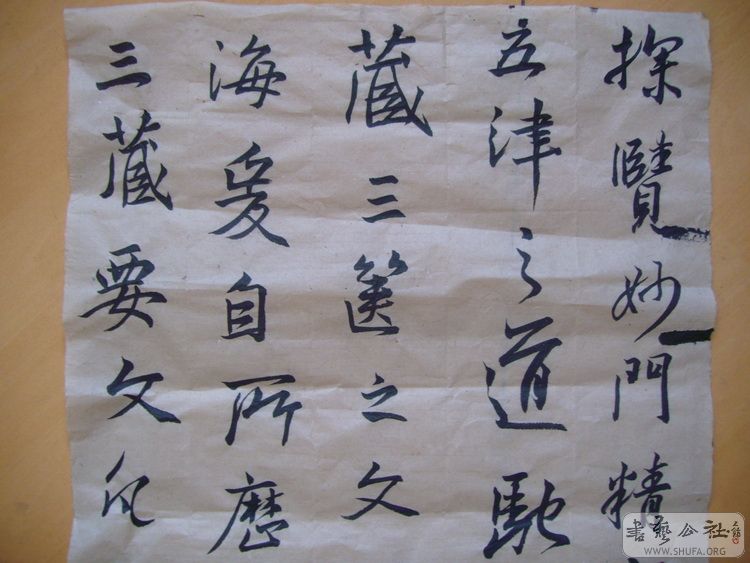 探賾妙門精
五律之道馳
藏三篋之文
海爰自所歷
三藏要文凡
書藝公社
WWW.SHUFA.ORG